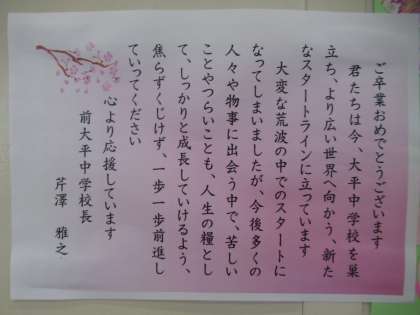 ご卒業おめでとうございます
君たちは今、大平中学校を巣
立ち、より広い世界へ向かう、新た
なスタートラインに立っています
大変な荒波の中でのスタートに
なってしまいましたが、今後多くの
人々や物事に出会う中で、苦しい
ことやつらいことも、人生の糧とし
て、しっかりと成長していけるよう、
焦らずくじけず、一歩一歩前進し
ていってください
心より応援しています
前大平中学校長
芹澤　雅之